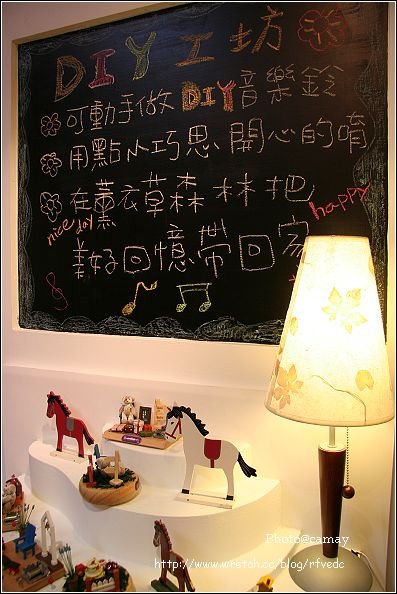 DIY工坊
可動手做DIY音樂鈴
用點小巧思開心的唷
在薰衣草森林把
美好回憶帶回家
nice day
happy
Photo@camay
http://www.wretch.cc/blog/rfvedc